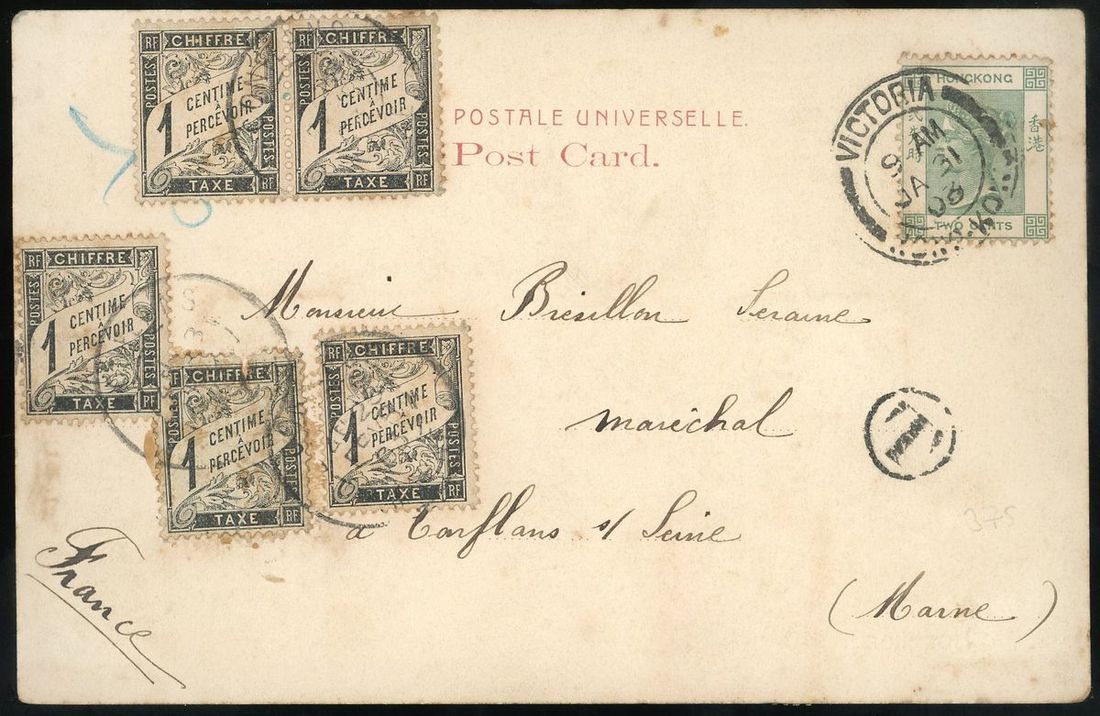 POSTALE UNIVERSELLE.
Post Card.
RF CHIFFRE
POSTES
1 CENTIME À PERCEVOIR
POSTES
TAXE RF
RF CHIFFRE
1 CENTIME À PERCEVOIR
POSTES
TAXE RF
HONGKONG
香港
TWO CENTS
VICTORIA
AM
JA 31
08
RF CHIFFRE
POSTES
1 CENTIME À PERCEVOIR
POSTES
TAXE RF
CHIFFRE
POSTES
1 CENTIME À PERCEVOIR
POSTES
TAXE RF
RF CHIFFRE
POSTES
1 CENTIME À PERCEVOIR
POSTES
TAXE RF
Monsieur Brésillon Seraine
maréchal
à Conflans s/ Seine
(Marne)
France
275